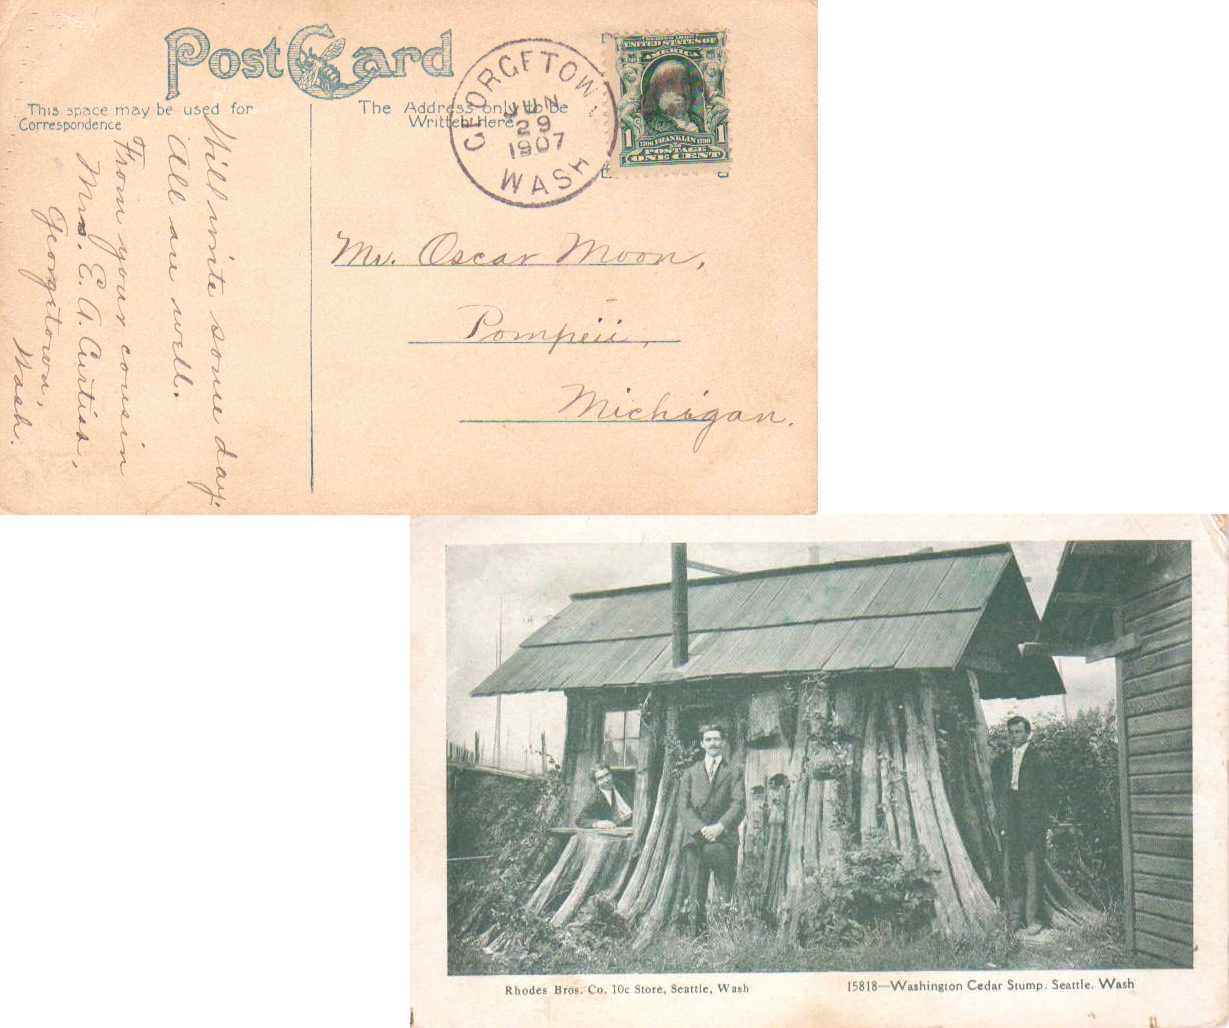 Post Card
This space may be used for
Correspondence
The Address only to be
Written Here.
GEORGETOWN
JUN
29
1907
WASH
UNITED STATES OF
AMERICA
1
1
1706 FRANKLIN 1790
POSTAGE
ONE CENT
Will write some day.
All are well.
From your cousin
Mrs. E. A. Curtiss,
Georgetown,
Wash.
Mr. Oscar Moon,
Pompeii,
Michigan.
Rhodes Bros. Co. 10c Store, Seattle, Wash
15818—Washington Cedar Stump. Seattle. Wash